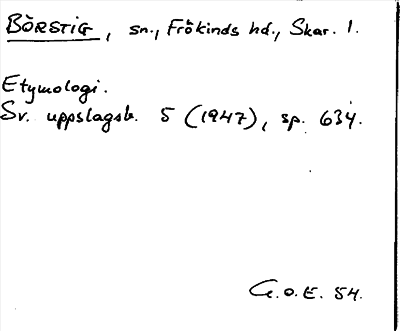 BÖRSTIG, sn., Frökinds hd., Skar. l.
Etymologi.
Sv. uppslagsb. 5 (1947), sp. 634.
G.O.E. 54.